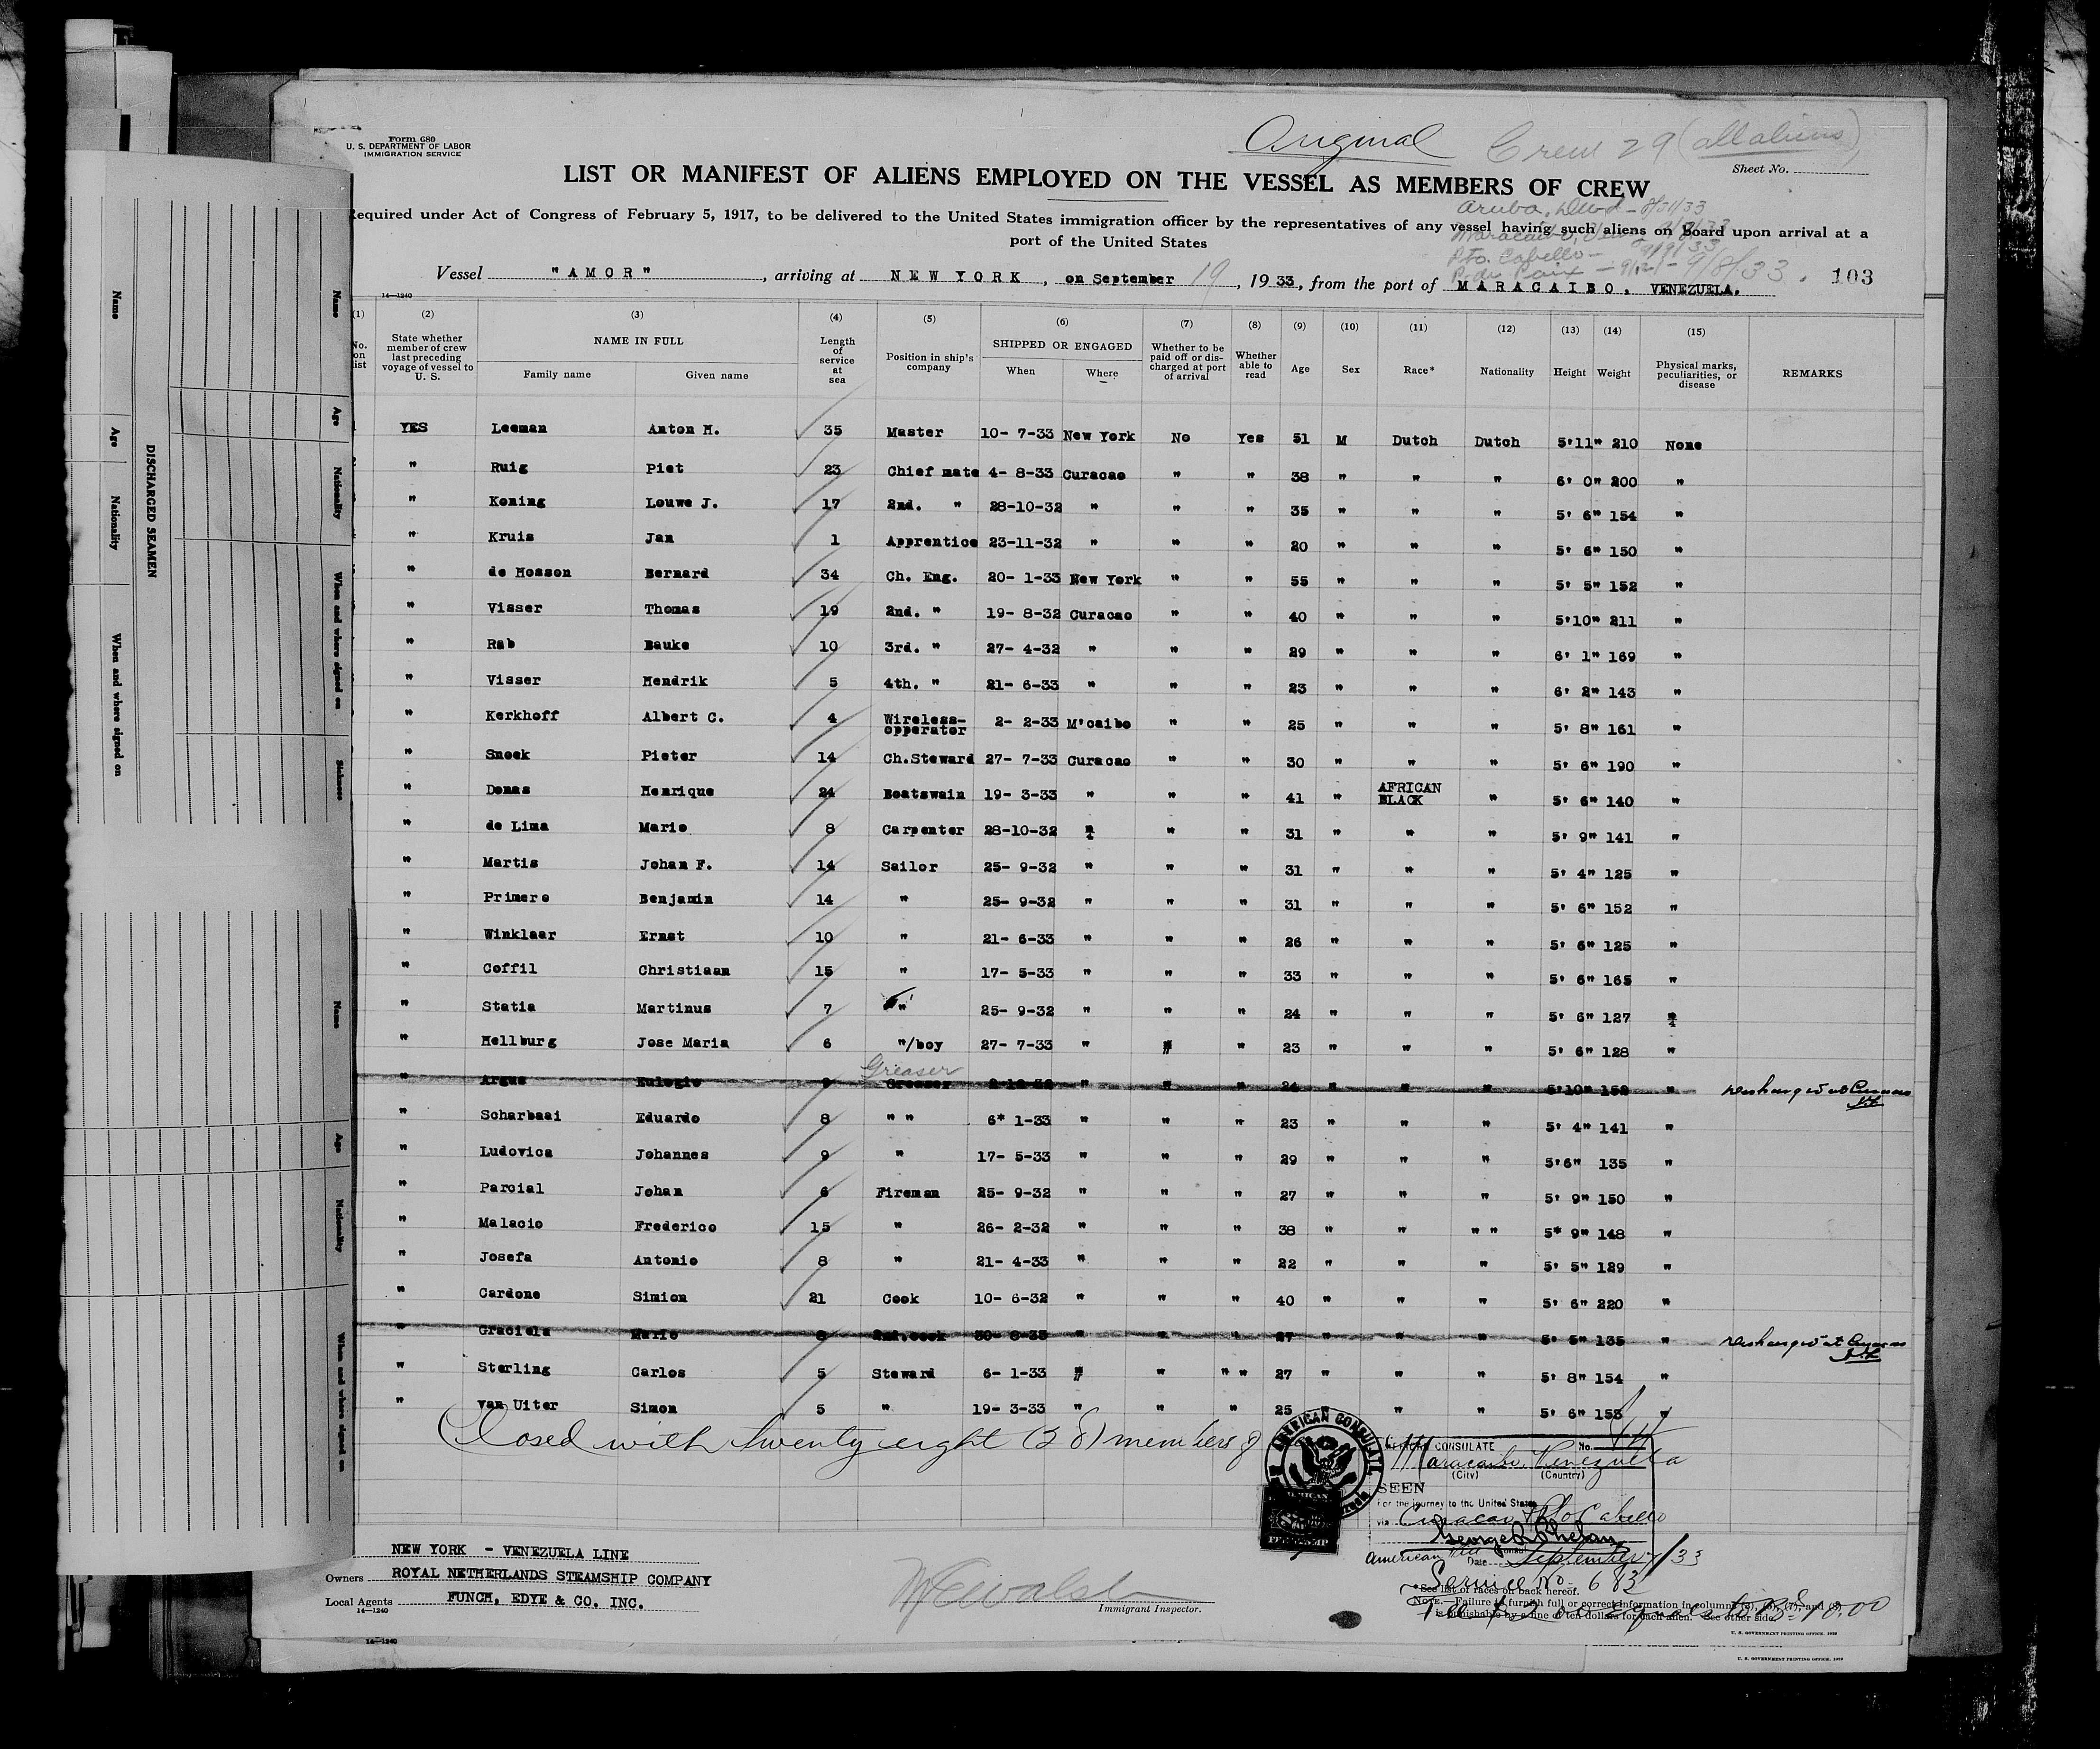 Form 680
U. S. DEPARTMENT OF LABOR
IMMIGRATION SERVICE
Original
Crew 29 (all aliens)
Sheet No.
LIST OR MANIFEST OF ALIENS EMPLOYED ON THE VESSEL AS MEMBERS OF CREW
Required under Act of Congress of February 5, 1917, to be delivered to the United States immigration officer by the representatives of any vessel having such aliens on board upon arrival at a
port of the United States
Vessel "AMOR", arriving at NEW YORK, on September 19, 1933, from the port of MARACAIBO, VENEZUELA.
103
14—1240
(1) (2) (3) (4) (5) (6) (7) (8) (9) (10) (11) (12) (13) (14) (15)
No. on list
State whether member of crew last preceding voyage of vessel to U. S.
NAME IN FULL
Family name
Given name
Length of service at sea
Position in ship's company
SHIPPED OR ENGAGED
When
Where
Whether to be paid off or discharged at port of arrival
Whether able to read
Age
Sex
Race*
Nationality
Height
Weight
Physical marks, peculiarities, or disease
REMARKS
YES Leeman Anton M. 35 Master 10- 7-33 New York No Yes 51 M Dutch Dutch 5'11" 210 None
" Ruig Piet 23 Chief mate 4- 8-33 Curacao " " 38 " " " 6' 0" 200 "
" Koning Louwe J. 17 2nd. " 28-10-32 " " " 35 " " " 5' 6" 154 "
" Kruis Jan 1 Apprentice 23-11-32 " " " 20 " " " 5' 6" 150 "
" de Hosson Bernard 34 Ch. Eng. 20- 1-33 New York " " 55 " " " 5' 5" 152 "
" Visser Thomas 19 2nd. " 19- 8-32 Curacao " " 40 " " " 5'10" 211 "
" Rab Bauke 10 3rd. " 27- 4-32 " " " 29 " " " 6' 1" 169 "
" Visser Hendrik 5 4th. " 21- 6-33 " " " 23 " " " 6' 2" 143 "
" Kerkhoff Albert C. 4 Wireless-opperator 2- 2-33 M'caibo " " 25 " " " 5' 8" 161 "
" Snoek Pieter 14 Ch.Steward 27- 7-33 Curacao " " 30 " " " 5' 6" 190 "
" Domas Henrique 24 Boatswain 19- 3-33 " " " 41 " AFRICAN BLACK " 5' 6" 140 "
" de Lima Mario 8 Carpenter 28-10-32 " " " 31 " " " 5' 9" 141 "
" Martis Johan F. 14 Sailor 25- 9-32 " " " 31 " " " 5' 4" 125 "
" Primero Benjamin 14 " 25- 9-32 " " " 31 " " " 5' 6" 152 "
" Winklaar Ernst 10 " 21- 6-33 " " " 26 " " " 5' 6" 125 "
" Coffil Christiaan 15 " 17- 5-33 " " " 33 " " " 5' 6" 165 "
" Statia Martinus 7 " 25- 9-32 " " " 24 " " " 5' 6" 127 "
" Hellburg Jose Maria 6 "/boy 27- 7-33 " " " 23 " " " 5' 6" 128 "
Greaser
" Argus Eulogio Greaser " " " 24 " " " 5'10" "
" Scharbaai Eduardo 8 " " 6* 1-33 " " " 23 " " " 5' 4" 141 "
" Ludovica Johannes 9 " 17- 5-33 " " " 29 " " " 5'6" 135 "
" Parcial Johan 6 Fireman 25- 9-32 " " " 27 " " " 5' 9" 150 "
" Malacio Frederico 15 " 26- 2-32 " " " 38 " " " " 5* 9" 148 "
" Josefa Antonio 8 " 21- 4-33 " " " 22 " " " 5' 5" 129 "
" Cardone Simion 21 Cook 10- 6-32 " " " 40 " " " 5' 6" 220 "
" Graciela Mario 2nd.cook " " " 27 " " " 5' 5" 135 "
" Sterling Carlos 5 Steward 6- 1-33 " " " " 27 " " " 5' 8" 154 "
" van Uiter Simon 5 " 19- 3-33 " " " 25 " " " 5' 6" 153 "
Closed with twenty eight (28) members of
AMERICAN CONSULATE
No.
Maracaibo, Venezuela
(City) (Country)
SEEN
For the journey to the United States
via Curacao & Pto Cabello
American Vice Consul
Date September 7/33
Service No. 683
NEW YORK - VENEZUELA LINE
Owners ROYAL NETHERLANDS STEAMSHIP COMPANY
Local Agents FUNCH, EDYE & CO. INC.
14—1240
Immigrant Inspector.
*See list of races on back hereof.
NOTE.—Failure to furnish full or correct information in columns (4), (5), (7), and (8)
is punishable by a fine of ten dollars for each alien. See other side.
U. S. GOVERNMENT PRINTING OFFICE
14—1240
U. S. GOVERNMENT PRINTING OFFICE
DISCHARGED SEAMEN
Name
Age
Nationality
When and where signed on
Name
Age
Nationality
When and where signed on
Sickness
Name
Age
Nationality
When and where signed on